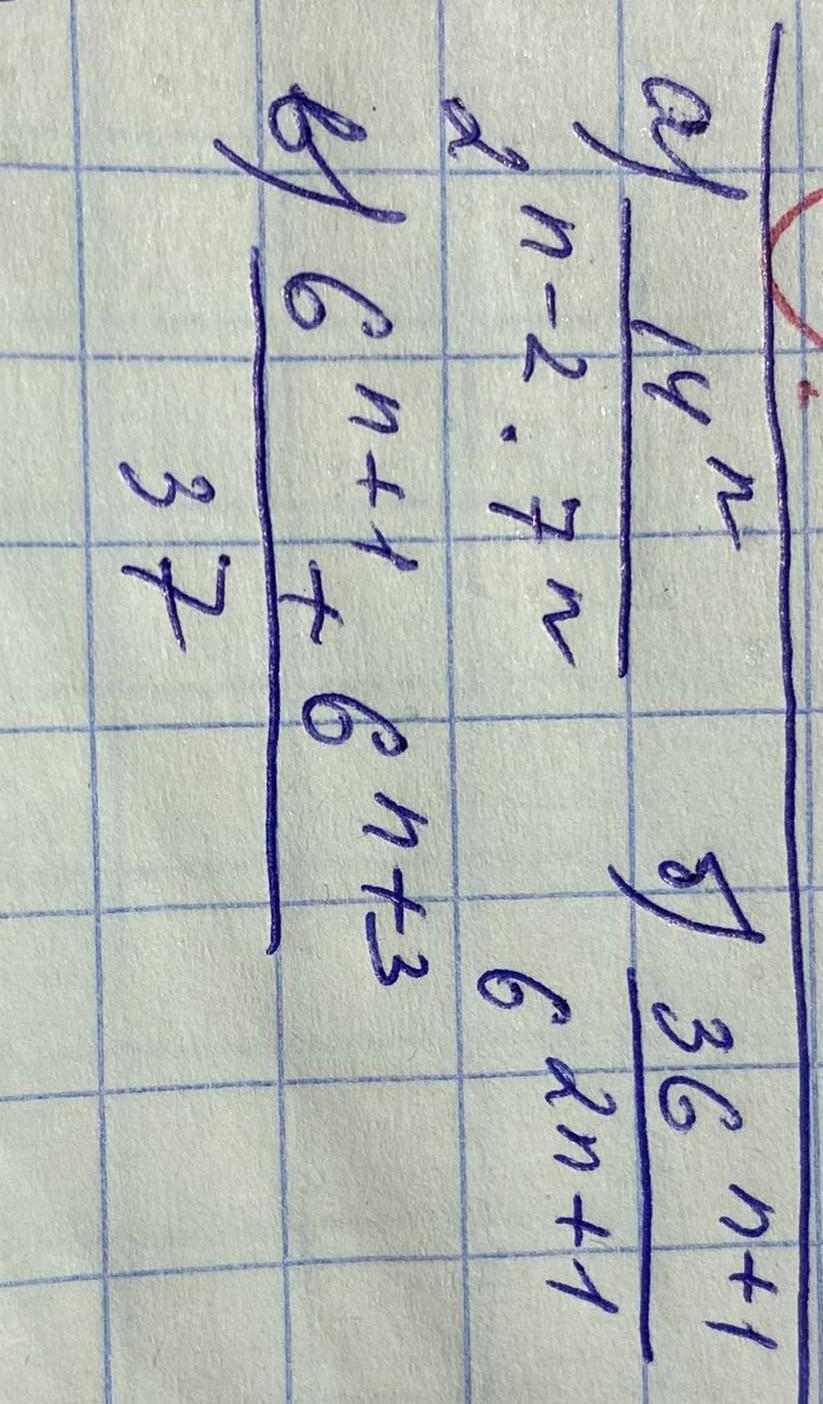 а) 14ⁿ / 2ⁿ⁻² · 7ⁿ
б) 36ⁿ⁺¹ / 6²ⁿ⁺¹
в) 6ⁿ⁺¹ + 6ⁿ⁺³ / 37